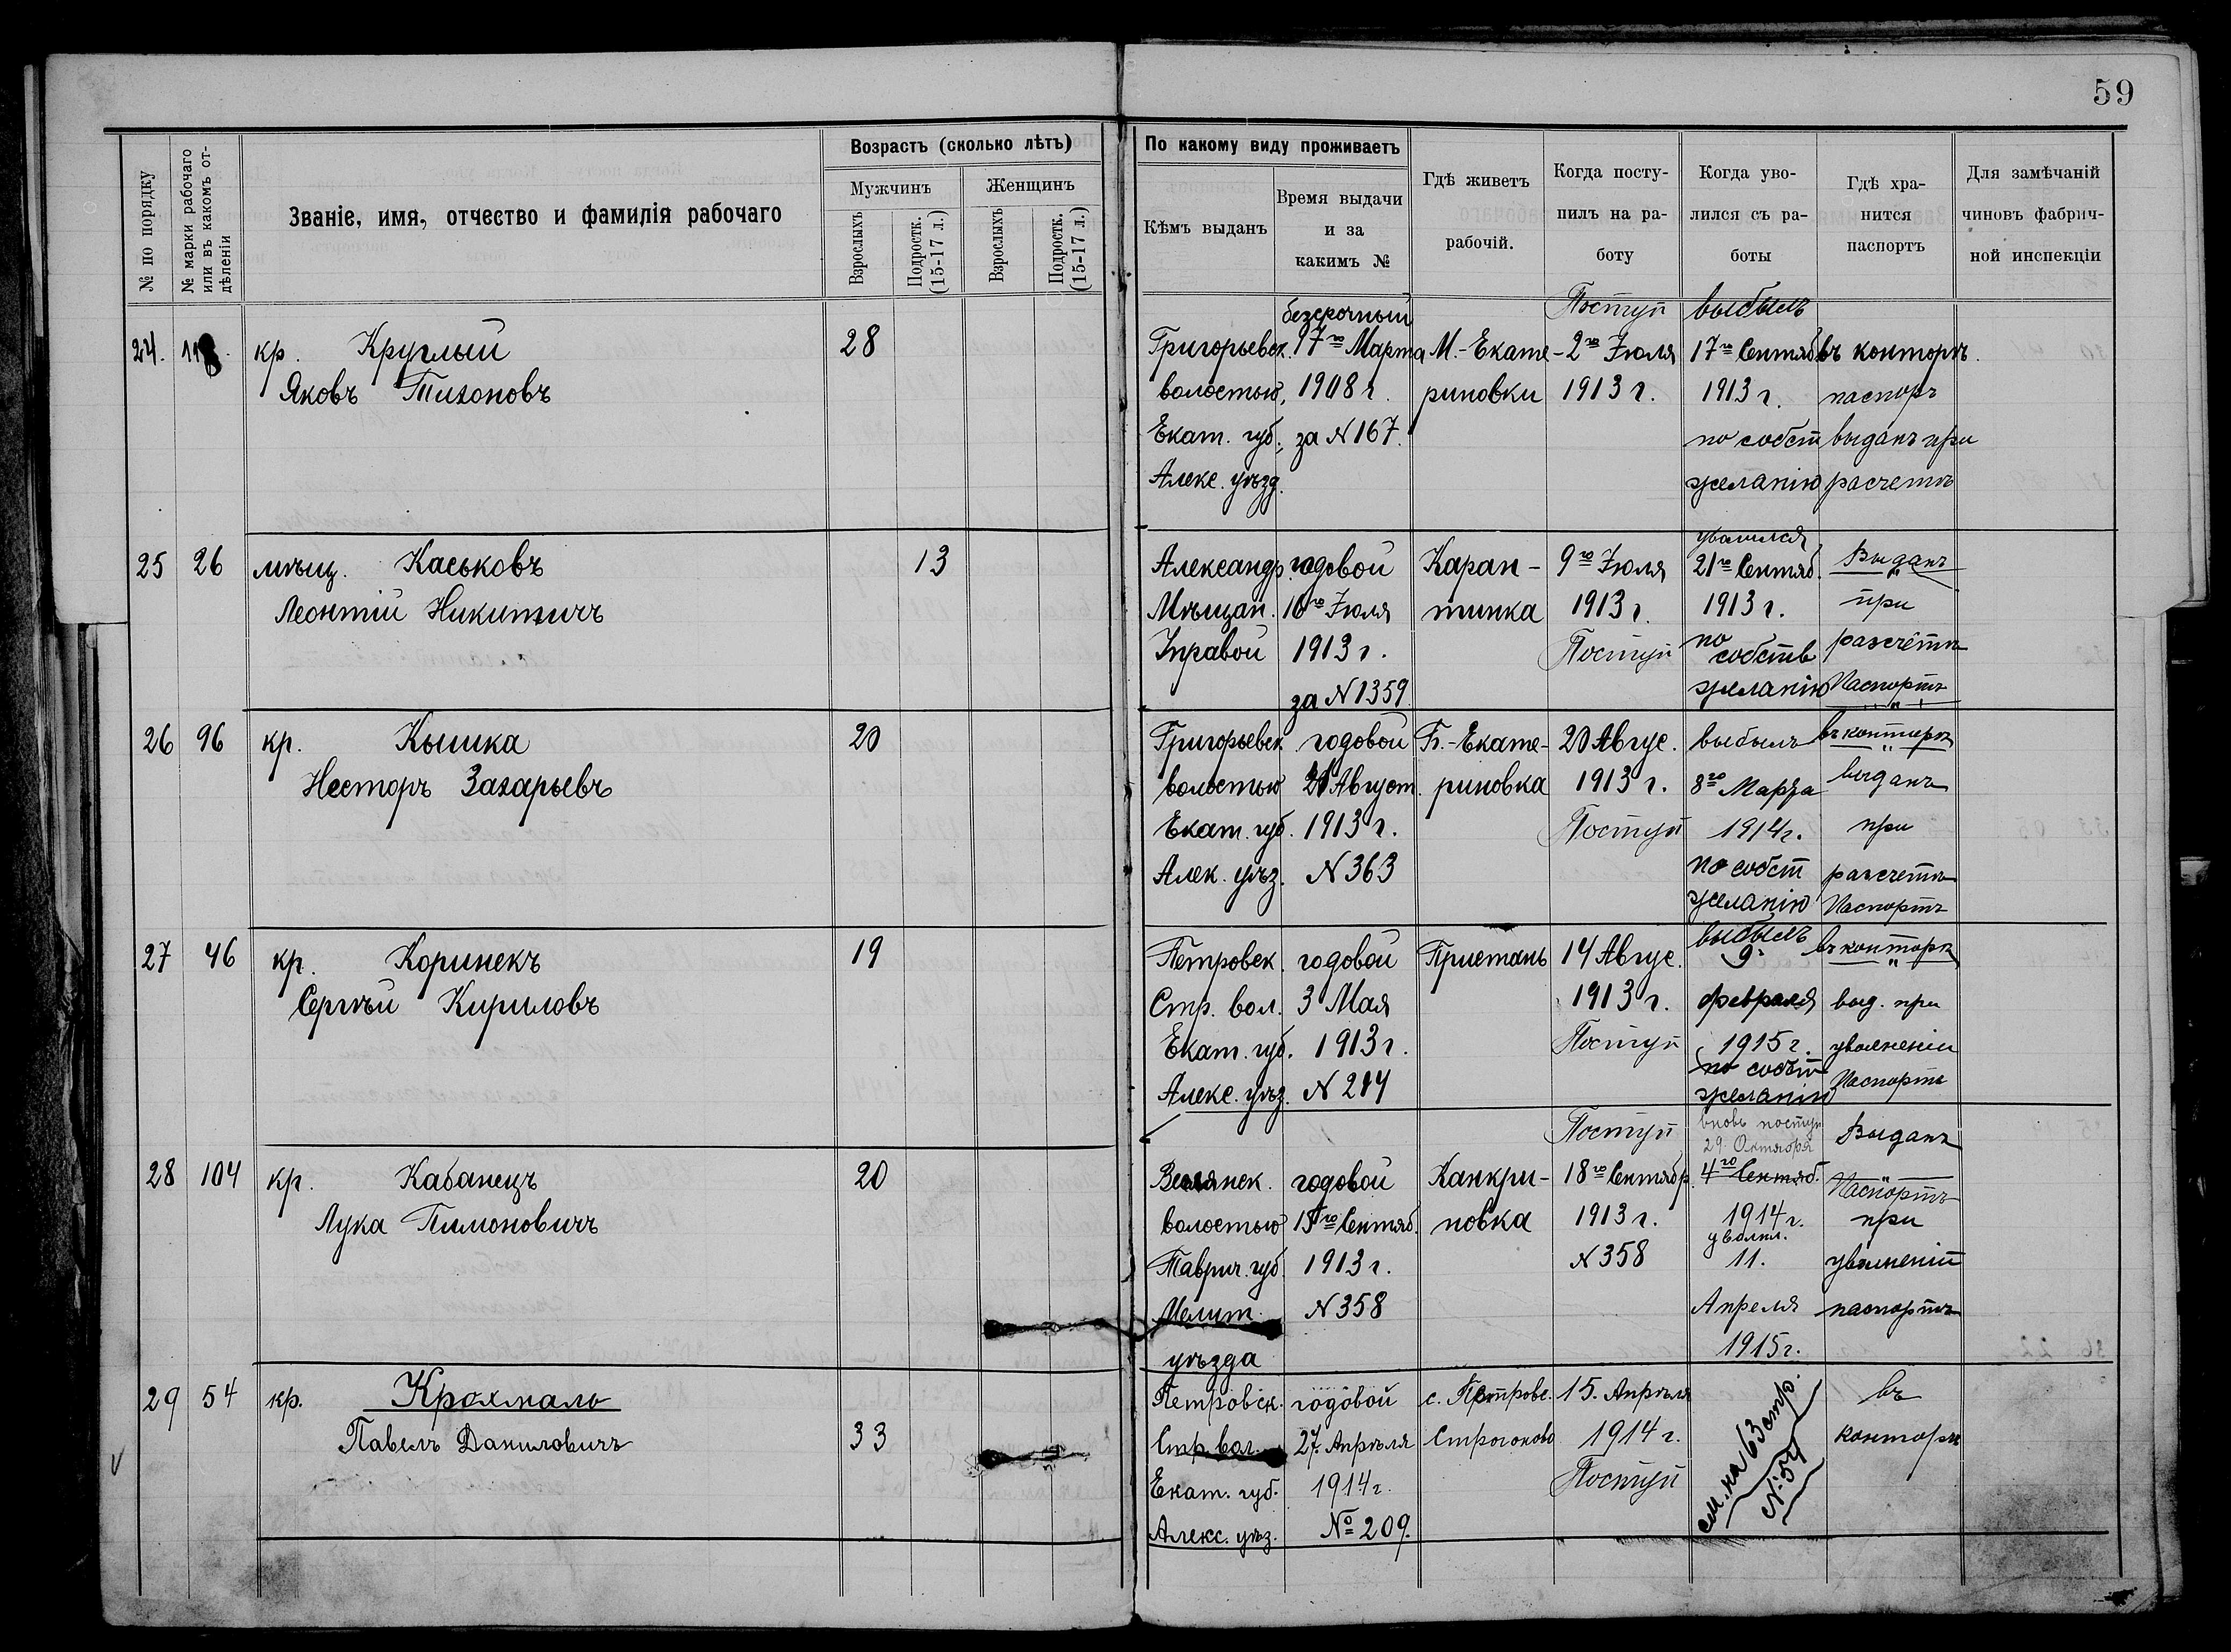 59
№ по порядку
№ марки рабочаго или въ какомъ отдѣленіи
Званіе, имя, отчество и фамилія рабочаго
Возрастъ (сколько лѣтъ)
Мужчинъ
Женщинъ
Взрослыхъ
Подростк. (15-17 л.)
Взрослыхъ
Подростк. (15-17 л.)
По какому виду проживаетъ
Кѣмъ выданъ
Время выдачи
и за
какимъ №
Гдѣ живетъ
рабочій.
Когда посту-
пилъ на ра-
боту
Когда уво-
лился съ ра-
боты
Гдѣ хра-
нится
паспортъ
Для замѣчаній
чиновъ фабрич-
ной инспекціи
24.
кр. Круглый
Яковъ Тихоновъ
28
Григорьевск.
волостью,
Екат. губ.,
Алекс. уѣзд.
безсрочный
17го Марта
1908 г.
за N 167.
М.-Екате-
риновки
Поступ
2го Іюля
1913 г.
выбылъ
17го Сентяб
1913 г.
по собст
желанію
въ конторѣ.
паспоръ
выданъ при
расчетѣ
25 26
мѣщ. Каськовъ
Леонтій Никитичъ
13
Александр.
Мѣщан.
Управой
годовой
10го Іюля
1913 г.
за N 1359
Каран-
тинка
9го Іюля
1913 г.
Поступ
уволился
21го Сентяб.
1913 г.
по
собств
желанію
Выданъ
при
разсчетѣ
Паспортъ
26 96
кр. Кышка
Несторъ Захарьевъ
20
Григорьевск
волостью
Екат. губ.
Алек. уѣз.
годовой
21 Август.
1913 г.
N 363
Б.-Екате-
риновка
20 Авгус.
1913 г.
Поступ
выбылъ
8го Марта
1914 г.
по собст
желанію
въ конторѣ
выданъ
при
разсчетѣ
Паспортъ
27 46
кр. Коринекъ
Сергѣй Кириловъ
19
Петровск.
Стр. вол.
Екат. губ.
Алекс. уѣз.
годовой
3 Мая
1913 г.
N 214
Пристань
14 Авгус.
1913 г.
Поступ
выбылъ
9
февраля
1915 г.
по собст
желанію
въ конторѣ
выд. при
увольненіи
Паспортъ
28 104
кр. Кабанецъ
Лука Пимоновичъ
20
волостью
Таврич. губ.
Мелит.
уѣзда
годовой
15го Сентяб.
1913 г.
N 358
Канкри-
новка
Поступ
18го Сентябр.
1913 г.
N 358
вновь поступ
29 Октября
4го Сентяб.
1914 г.
уволил.
11.
Апреля
1915 г.
Выданъ
Паспортъ
при
увольненіи
паспортъ
29 54
кр. Крохмаль
Павелъ Даниловичъ
33
Петровск.
Стр. вол.
Екат. губ.
Алекс. уѣз.
годовой
27. Апрѣля
1914 г.
№ 209.
с. Петровс.
Строгоново
15. Апрѣля
1914 г.
Поступ
см. на 63 стр.
N: 54
въ
конторѣ